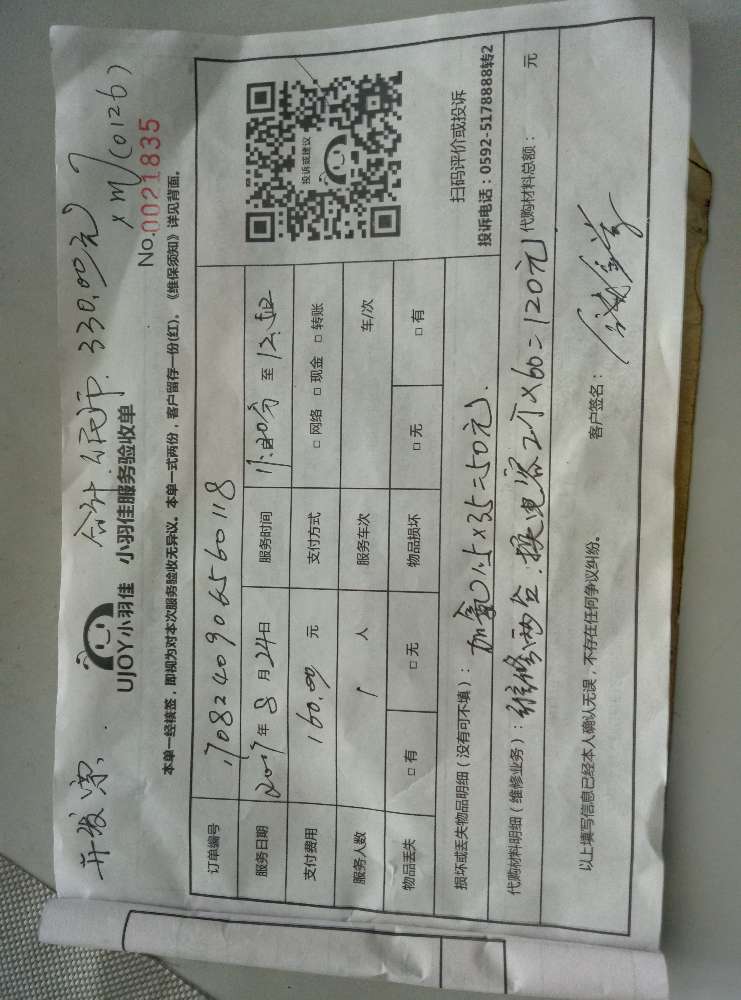 开发票. 合计.人民币. 330.00元
xm7(0126)
UJOY小羽佳 小羽佳服务验收单
No.0021835
本单一经核签，即视为对本次服务验收无异议。本单一式两份，客户留存一份(红)。《维保须知》详见背面。
订单编号 1708240906560118
服务日期 2017年8月24日 服务时间 至
支付费用 160.00元 支付方式 □网络 □现金 □转账
服务人数 1 人 服务车次 车/次
物品丢失 □有 □无 物品损坏 □无 □有
投诉或建议
扫码评价或投诉
投诉电话：0592-5178888转2
损坏或丢失物品明细（没有可不填）： 加氟 1.5×35=50元).
代购材料明细（维修业务）： 维修两台.换电容2个×60=120元 代购材料总额： 元
以上填写信息已经本人确认无误，不存在任何争议纠纷。 客户签名：